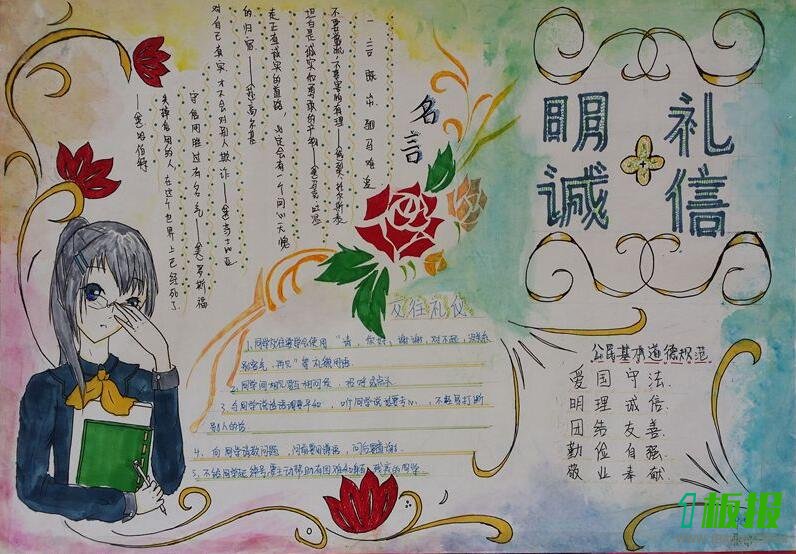 明 礼
诚 信
名言
一言既出驷马难追
坦白是诚实和勇敢的产物——
走正直诚实的道路，必定会有一个问心无愧
的归宿——高尔基
对自己真实，才不会对别人欺诈——莎士比亚
守信用胜过有名气——美 罗斯福
失掉信用的人，在这个世界上已经死了
交往礼仪
1、同学交往要学会使用"请，你好，谢谢，对不起，没关系
别客气，再见"等礼貌用语
2、同学间相见互相问候，招呼或点头
3、与同学说话语调要平和，听同学说话要专心，不轻易打断
别人的话
4、向同学请教问题，问前要用请语，问后要有谢意
5、不给同学起绰号，要主动帮助有困难和有残疾的同学.
公民基本道德规范
爱国守法.
明理诚信.
团结友善.
勤俭自强.
敬业奉献.
1板报